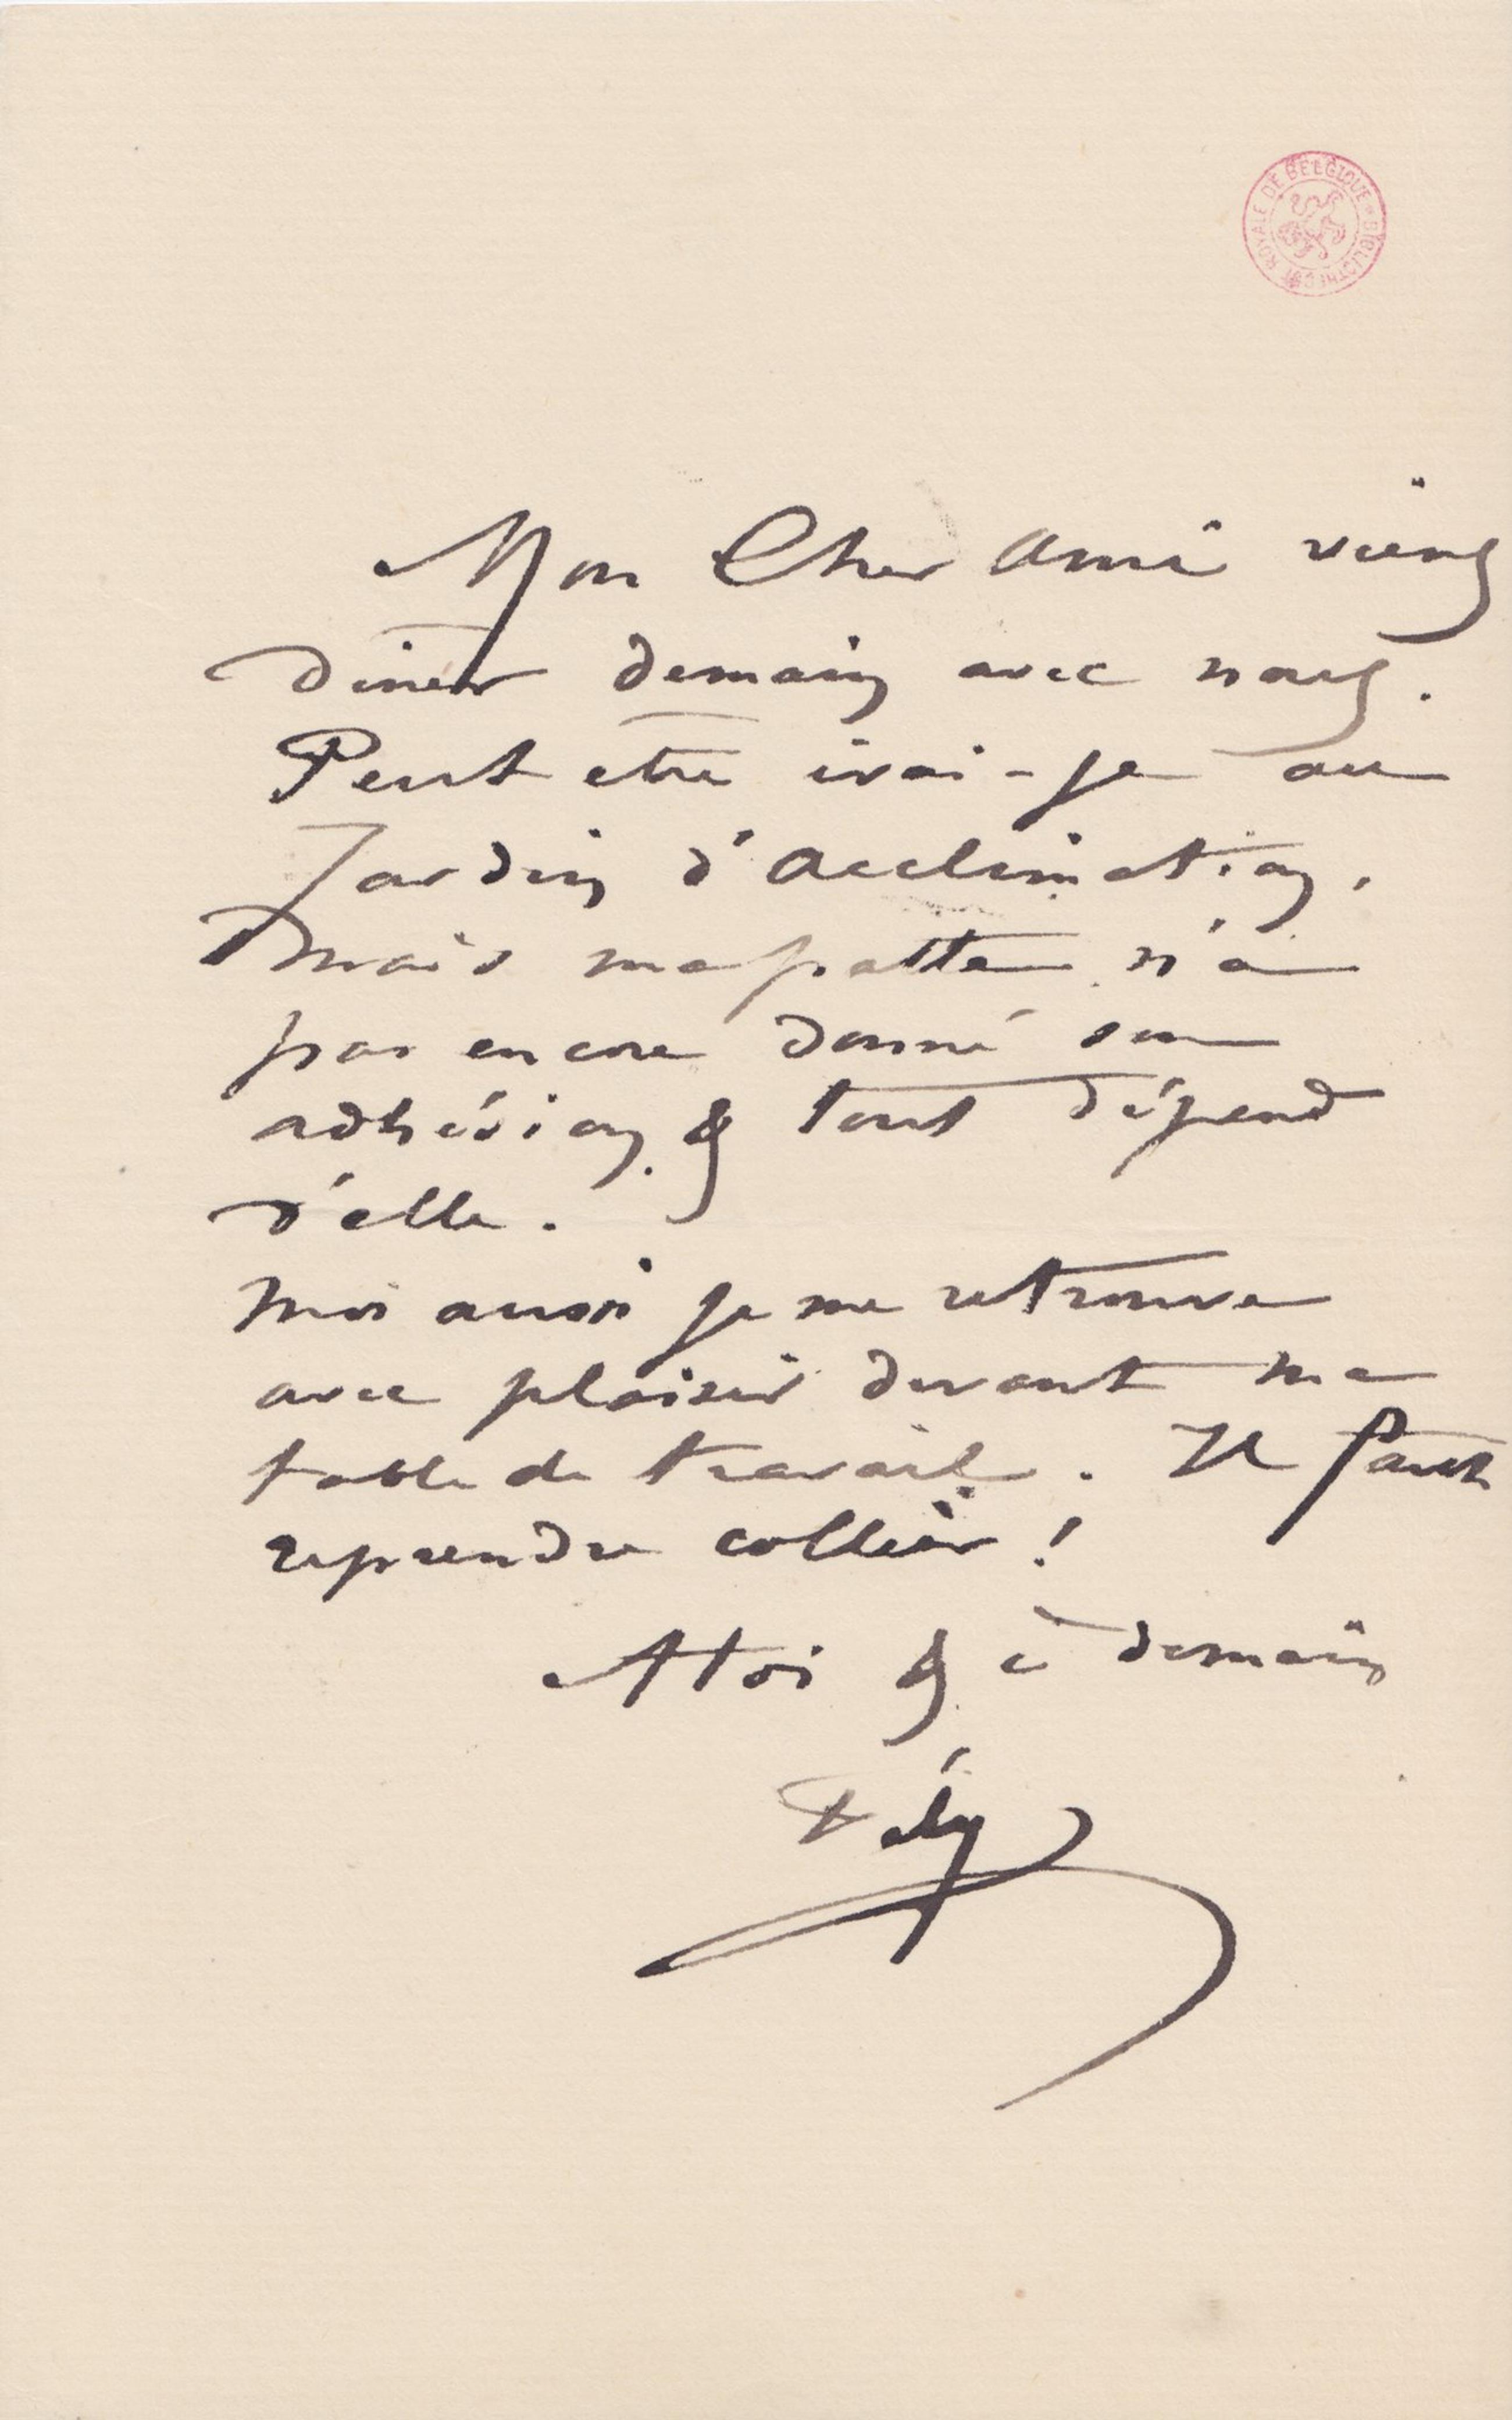 BIBLIOTHEQUE ROYALE DE BELGIQUE
Mon Cher Ami viens
diner demain avec nous.
Peut etre irai-je au
Jardin d'Acclimation,
mais ma patte n'a
pas encore donné son
adhésion, & tout dépend
d'elle.
Moi aussi je me retrouve
avec plaisir devant ma
table de travail. Il faut
reprendre collier!
A toi & à demain
Fély